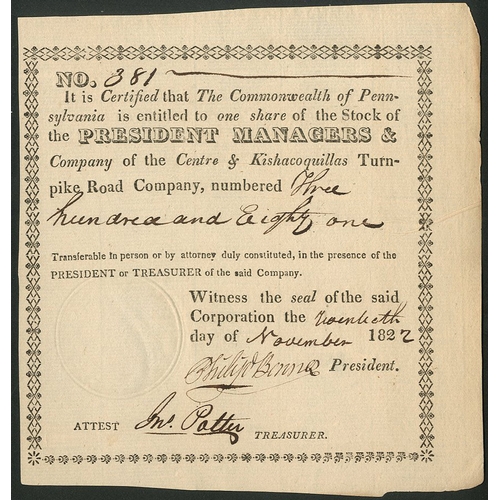 NO. 381
It is Certified that The Commonwealth of Penn-
sylvania is entitled to one share of the Stock of
the PRESIDENT MANAGERS &
Company of the Centre & Kishacoquillas Turn-
pike Road Company, numbered Three
hundred and Eighty one
Transferable In person or by attorney duly constituted, in the presence of the
PRESIDENT or TREASURER of the said Company.
Witness the seal of the said
Corporation the twentieth
day of November 1822
Philip Benner President.
ATTEST Jno. Potter TREASURER.